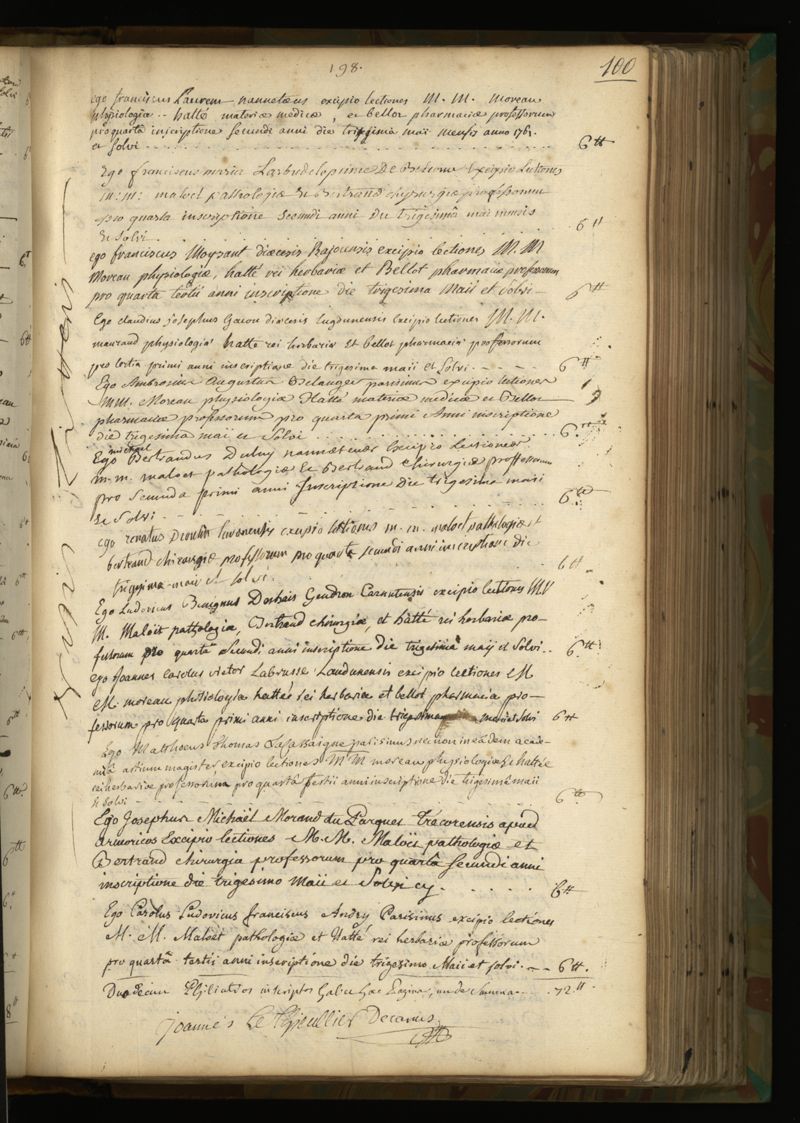 198.
100
ego franciscus Laurent nannetæus excipio lectiones M. M. moreau
physiologiæ .. hatté materiæ medicæ, et bellot pharmaciæ professorum
pro quartâ inscriptione secundi anni die trigesimâ maii mensis anno 1761.
et solvi 6 tt
Ego franciscus maria excipio Lectiones
M: M: maloet pathologiæ et Bertrand chyrurgiæ professorum
pro quarta inscriptione secundi anni die trigesimâ maii mensis
Et solvi 6 tt
ego franciscus Moysant diœcesis Bajocensis excipio lectiones M. M.
Moreau physiologiæ, hatté rei herbariæ et Bellot pharmaciæ professorum
pro quartâ tertii anni inscriptione die trigesima Maii et solvi 6 tt
Ego claudius josephus diœcesis Lugdunensis Excipio lectiones M. M.
physiologiæ hatte rei herbariæ et bellot pharmaciæ professorum
pro tertia primi anni inscriptione die trigesima maii et solvi 6 tt
Ego Ambrosius Augustus Belanger parisinus excipio lectiones
MM. Moreau physiologiæ Hatté materiæ medicæ et Bellot
pharmaciæ professorum pro quarta primi Anni inscriptione
die trigesima maii et solvi 6 tt
michael
Ego Bertrandus Dubuy nannætensis Excipio Lectiones
m. m. maloet pathologiæ Et Bertrand chirurgiæ professorum
pro secunda primi anni Inscriptione die trigesima maii
Et Solvi 6 tt
ego renatus excipio lectiones m. m. maloet pathologiæ et
bertrand chirurgiæ professorum pro quarta secundi anni inscriptione die
trigesima maii et solvi 6 tt
Ego Ludovicus Benignus Deshais Gendron Carnutensis excipio lectiones
M. Maloët pathologiæ, Bertrand chirurgiæ, et hatté rei herbariæ pro-
fessorum pro quartâ secundi anni inscriptione die trigesimâ maij et solvi 6 tt
ego Joannes Carolus victor Labrusse Laudunensis excipio lectiones M
M. moreau phisiologiæ hatté rei herbariæ et bellot pharmaciæ pro-
fessorum pro quarta primi anni inscriptione die trigesima maii et solvi 6 tt
Ego Matthæus Thomas parisinus necnon in eâdem acade-
miâ artium magister excipio lectiones MM moreau physiologiæ & hatté
rei herbariæ professorum pro quartâ tertii anni inscriptione die trigesimâ maii
& solvi 6 tt
Ego Josephus Michaël Morand du Parquet Trecorensis apud
armoricos Excipio lectiones M. M. Maloët pathologiæ et
Bertrand chirurgiæ professorum pro quartâ secundi anni
inscriptione die trigesimo Maii et Solvi 6 tt
Ego Carolus Ludovicus franciscus Andry Parisinus excipio lectiones
M. M. Maloët pathologiæ et Hatté rei herbariæ professorum
pro quartâ tertii anni inscriptione die trigesimo Maii et solvi 6 tt.
Duodecim Philiatros inscriptos habet hæc Pagina, unde summa 72 tt
Joannes Le Thieullier Decanus